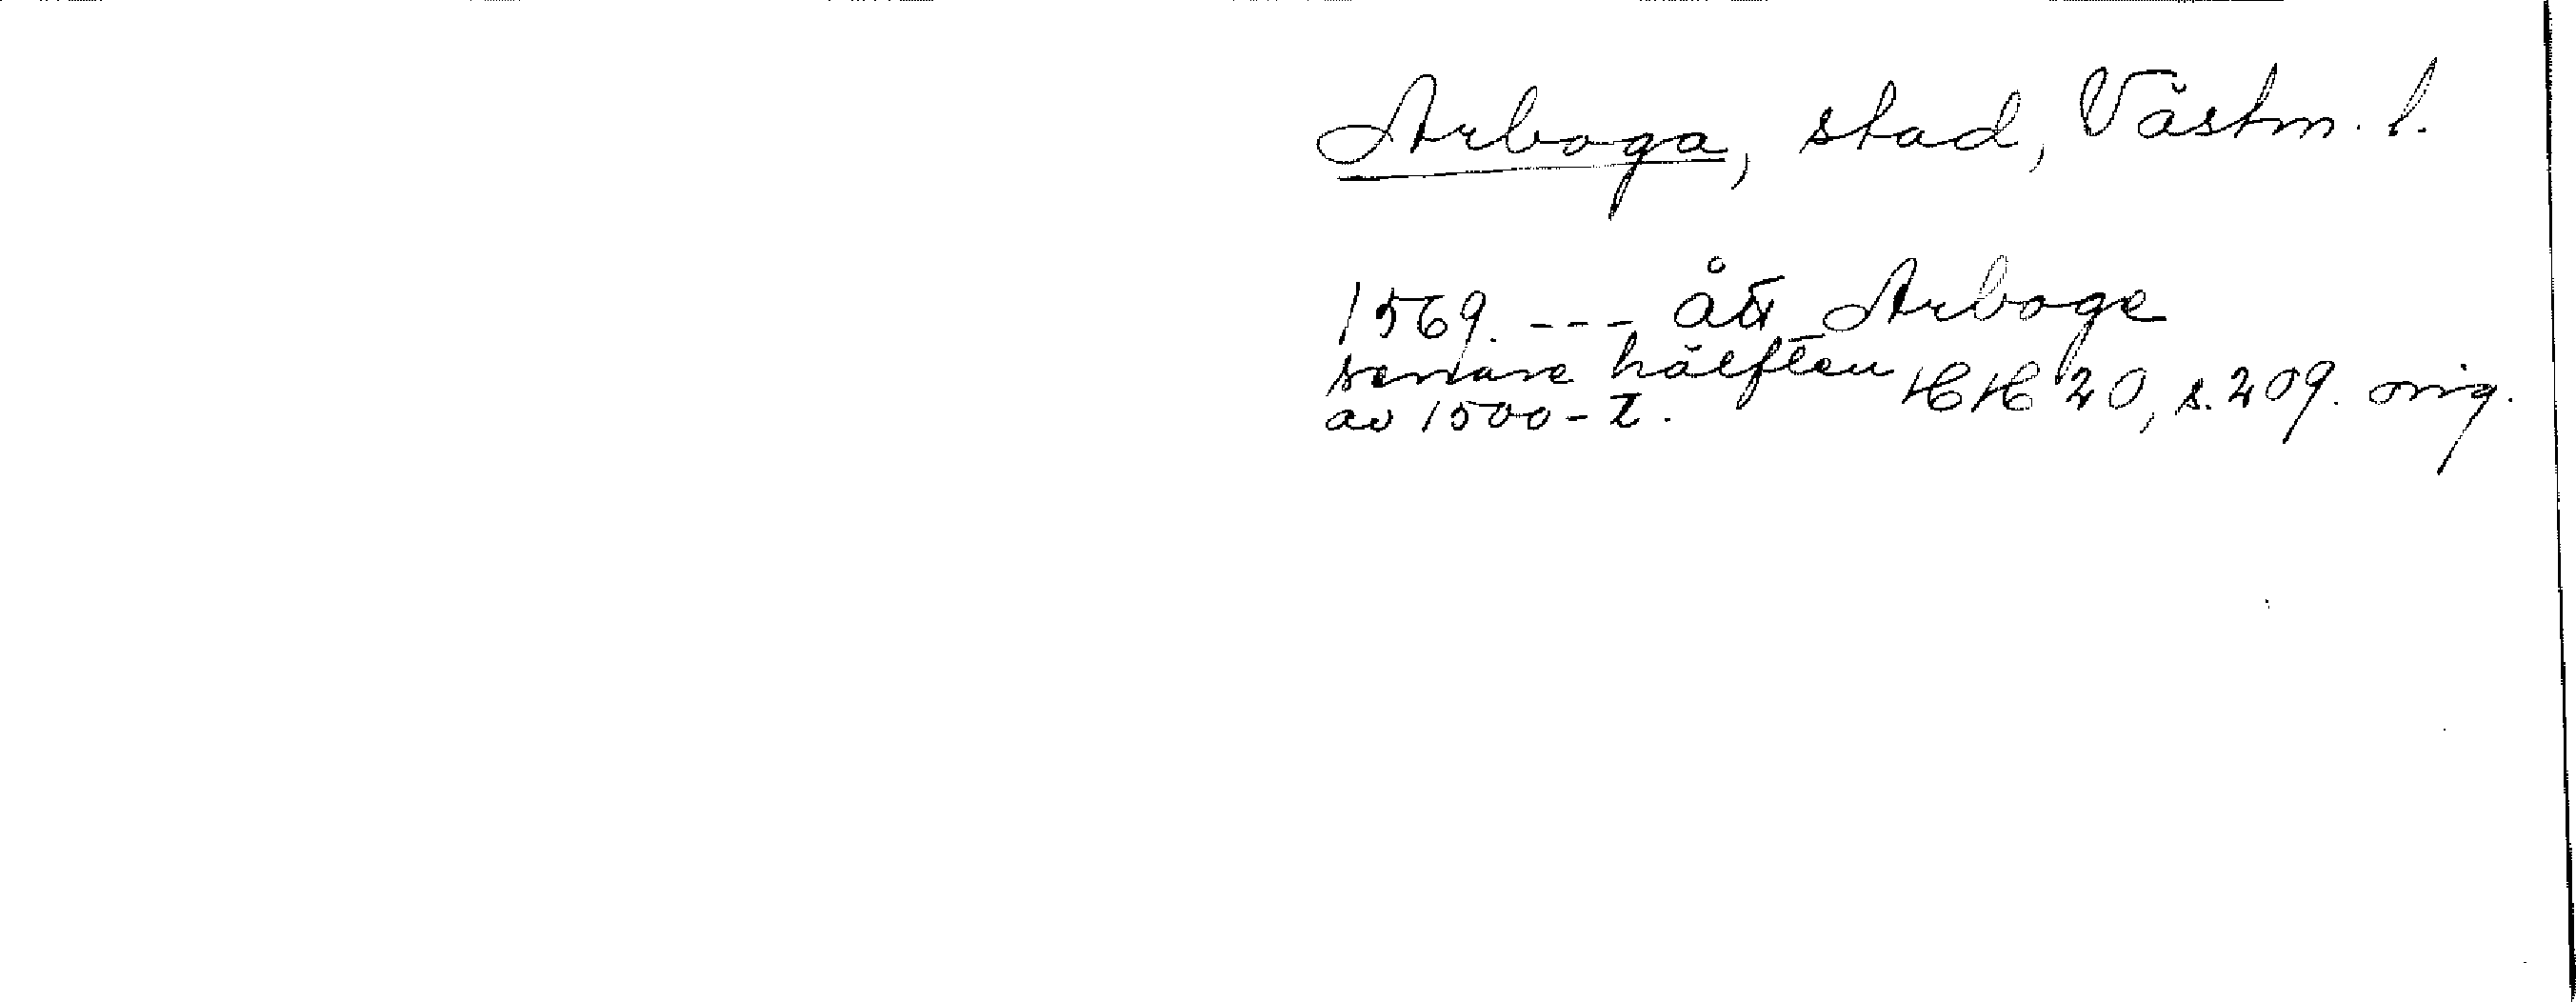 Arboga, stad, Västm. l.
1569. --- ått Arboge
senare hälften
av 1500-t. HH 20, s. 209. orig.